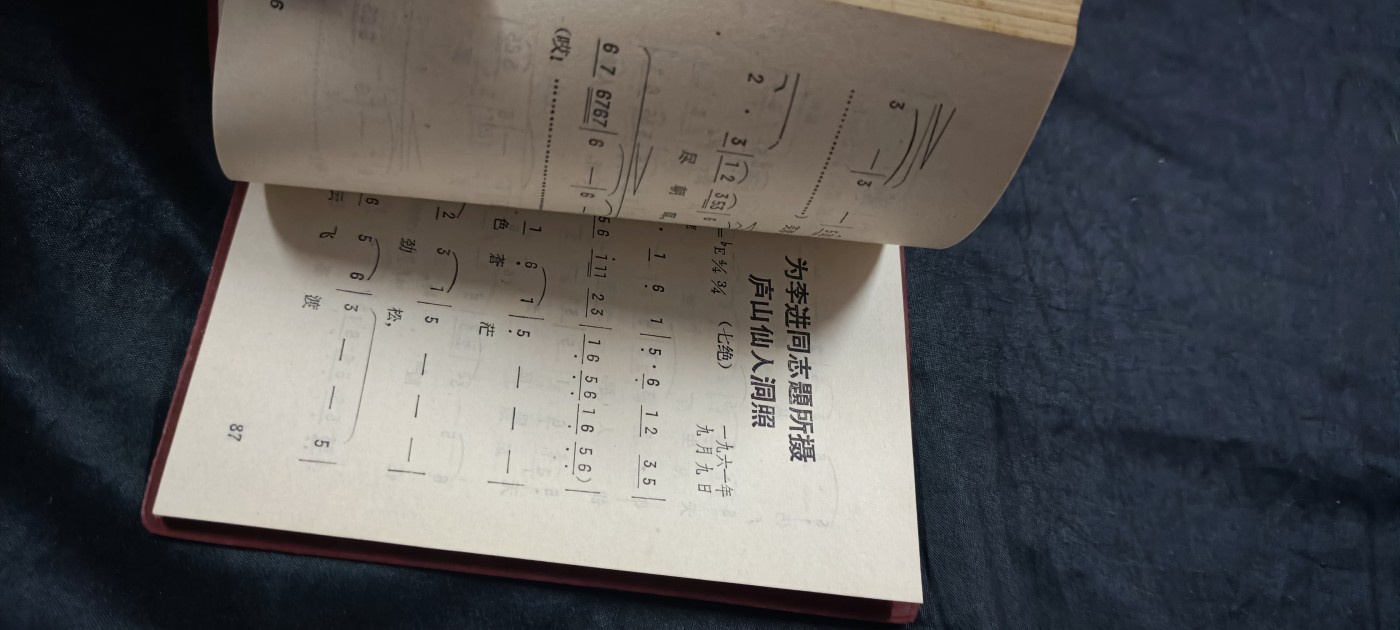 3 — | 3 —
2 · 3 | 1 2 3 5 3 | 6
尽 朝
6 7 6767 | 6 — | 6 -
(哎)
6
为李进同志题所摄
庐山仙人洞照
= ♭E 4/4 3/4 (七绝)
一九六一年
九月九日
1 6 1 | 5 · 6 1 2 3 5 |
5 6 i 11 2 3 | 1 6 5 6 1 6 5 6) |
1 6 1 | 5 — — — |
色 苍 茫
2 3 1 | 5 — — — |
劲 松,
6 5 6 | 3 — — 5 |
云 飞 渡
87